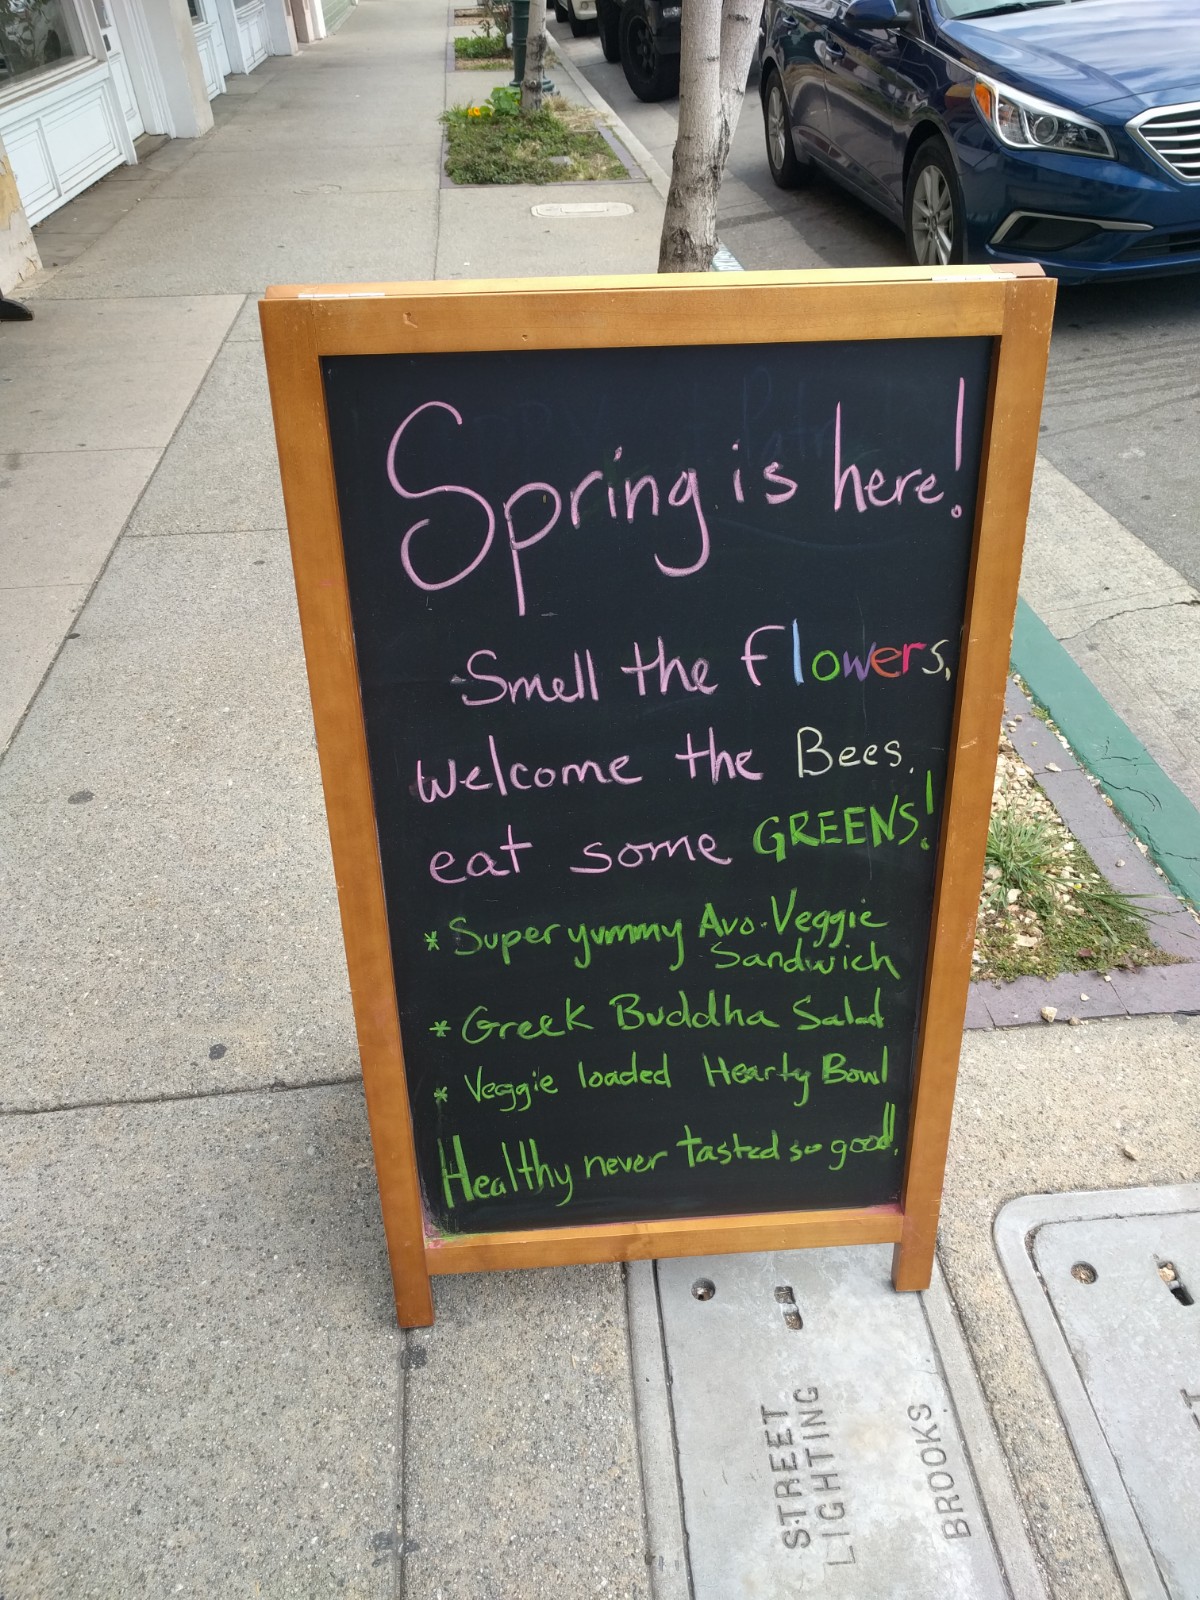 Spring is here!
Smell the flowers,
Welcome the Bees,
eat some GREENS!
* Super yummy Avo-Veggie
Sandwich
* Greek Buddha Salad
* Veggie loaded Hearty Bowl
Healthy never tasted so good!
STREET
LIGHTING
BROOKS